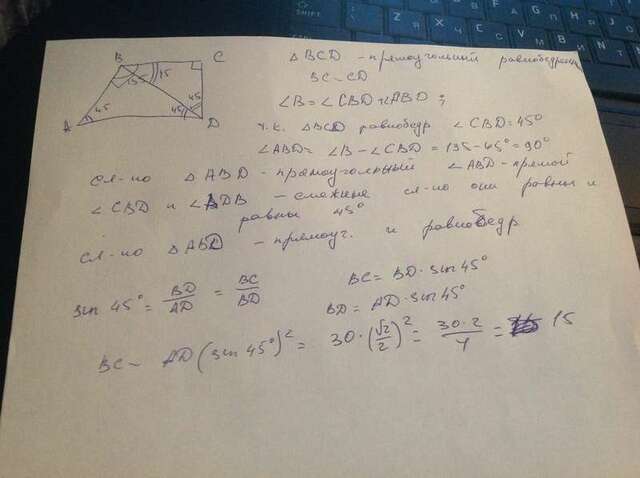 B C
135 45
45
A 45 45 D
△ BCD – прямоугольный равнобедрен
BC – CD
∠B = ∠CBD + ∠ABD ;
т.к. △BCD равнобедр ∠CBD = 45°
∠ABD = ∠B – ∠CBD = 135 – 45° = 90°
сл-но △ABD – прямоугольный ∠ABD – прямой
∠CBD и ∠ADB – смежные сл-но они равны и
равны 45°
сл-но △ABD – прямоуг. и равнобедр
sin 45° = BD/AD = BC/BD
BC = BD · sin 45°
BD = AD · sin 45°
BC – AD (sin 45°)² = 30 · (√2/2)² = 30·2/4 = 15
SHIFT